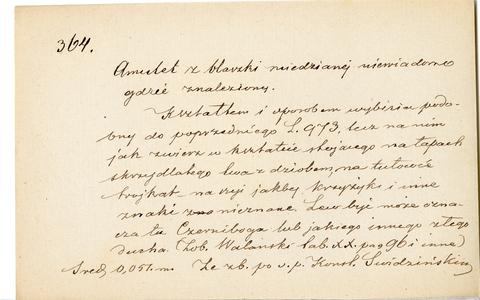 364.
Amulet z blaszki miedzianej niewiadomo
gdzie znaleziony.
Kształtem i sposobem wybicia podo-
bny do poprzedniego L. 973, lecz na nim
jak zwierz w kształcie stojącego na łapach
skrzydlatego lwa z dziobem, na tułowcé
trójkąt, na szyi jakby krzyżyk i inne
znaki nieznane. Lew być może ozna-
cza tu Czerniboga lub jakiego innego złego
ducha. (Zob. Wolański tab. XX. pag 96 i inne)
Średn. 0,051. m. Ze zb. po ś. p. Konst. Świdzińskim